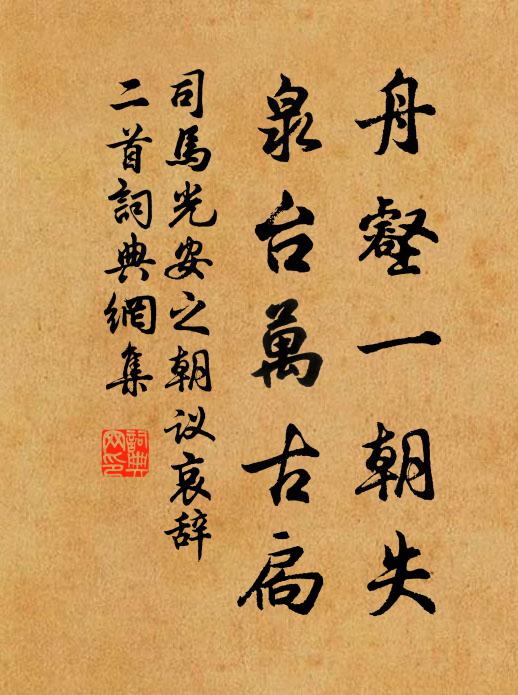 舟壑一朝失
泉台萬古扃
司馬光安之朝议哀辞
二首詞典網集
詞典網印